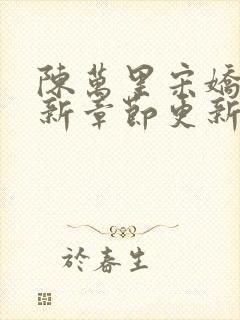 陳萬里宋嬌
新章節更新
於春生